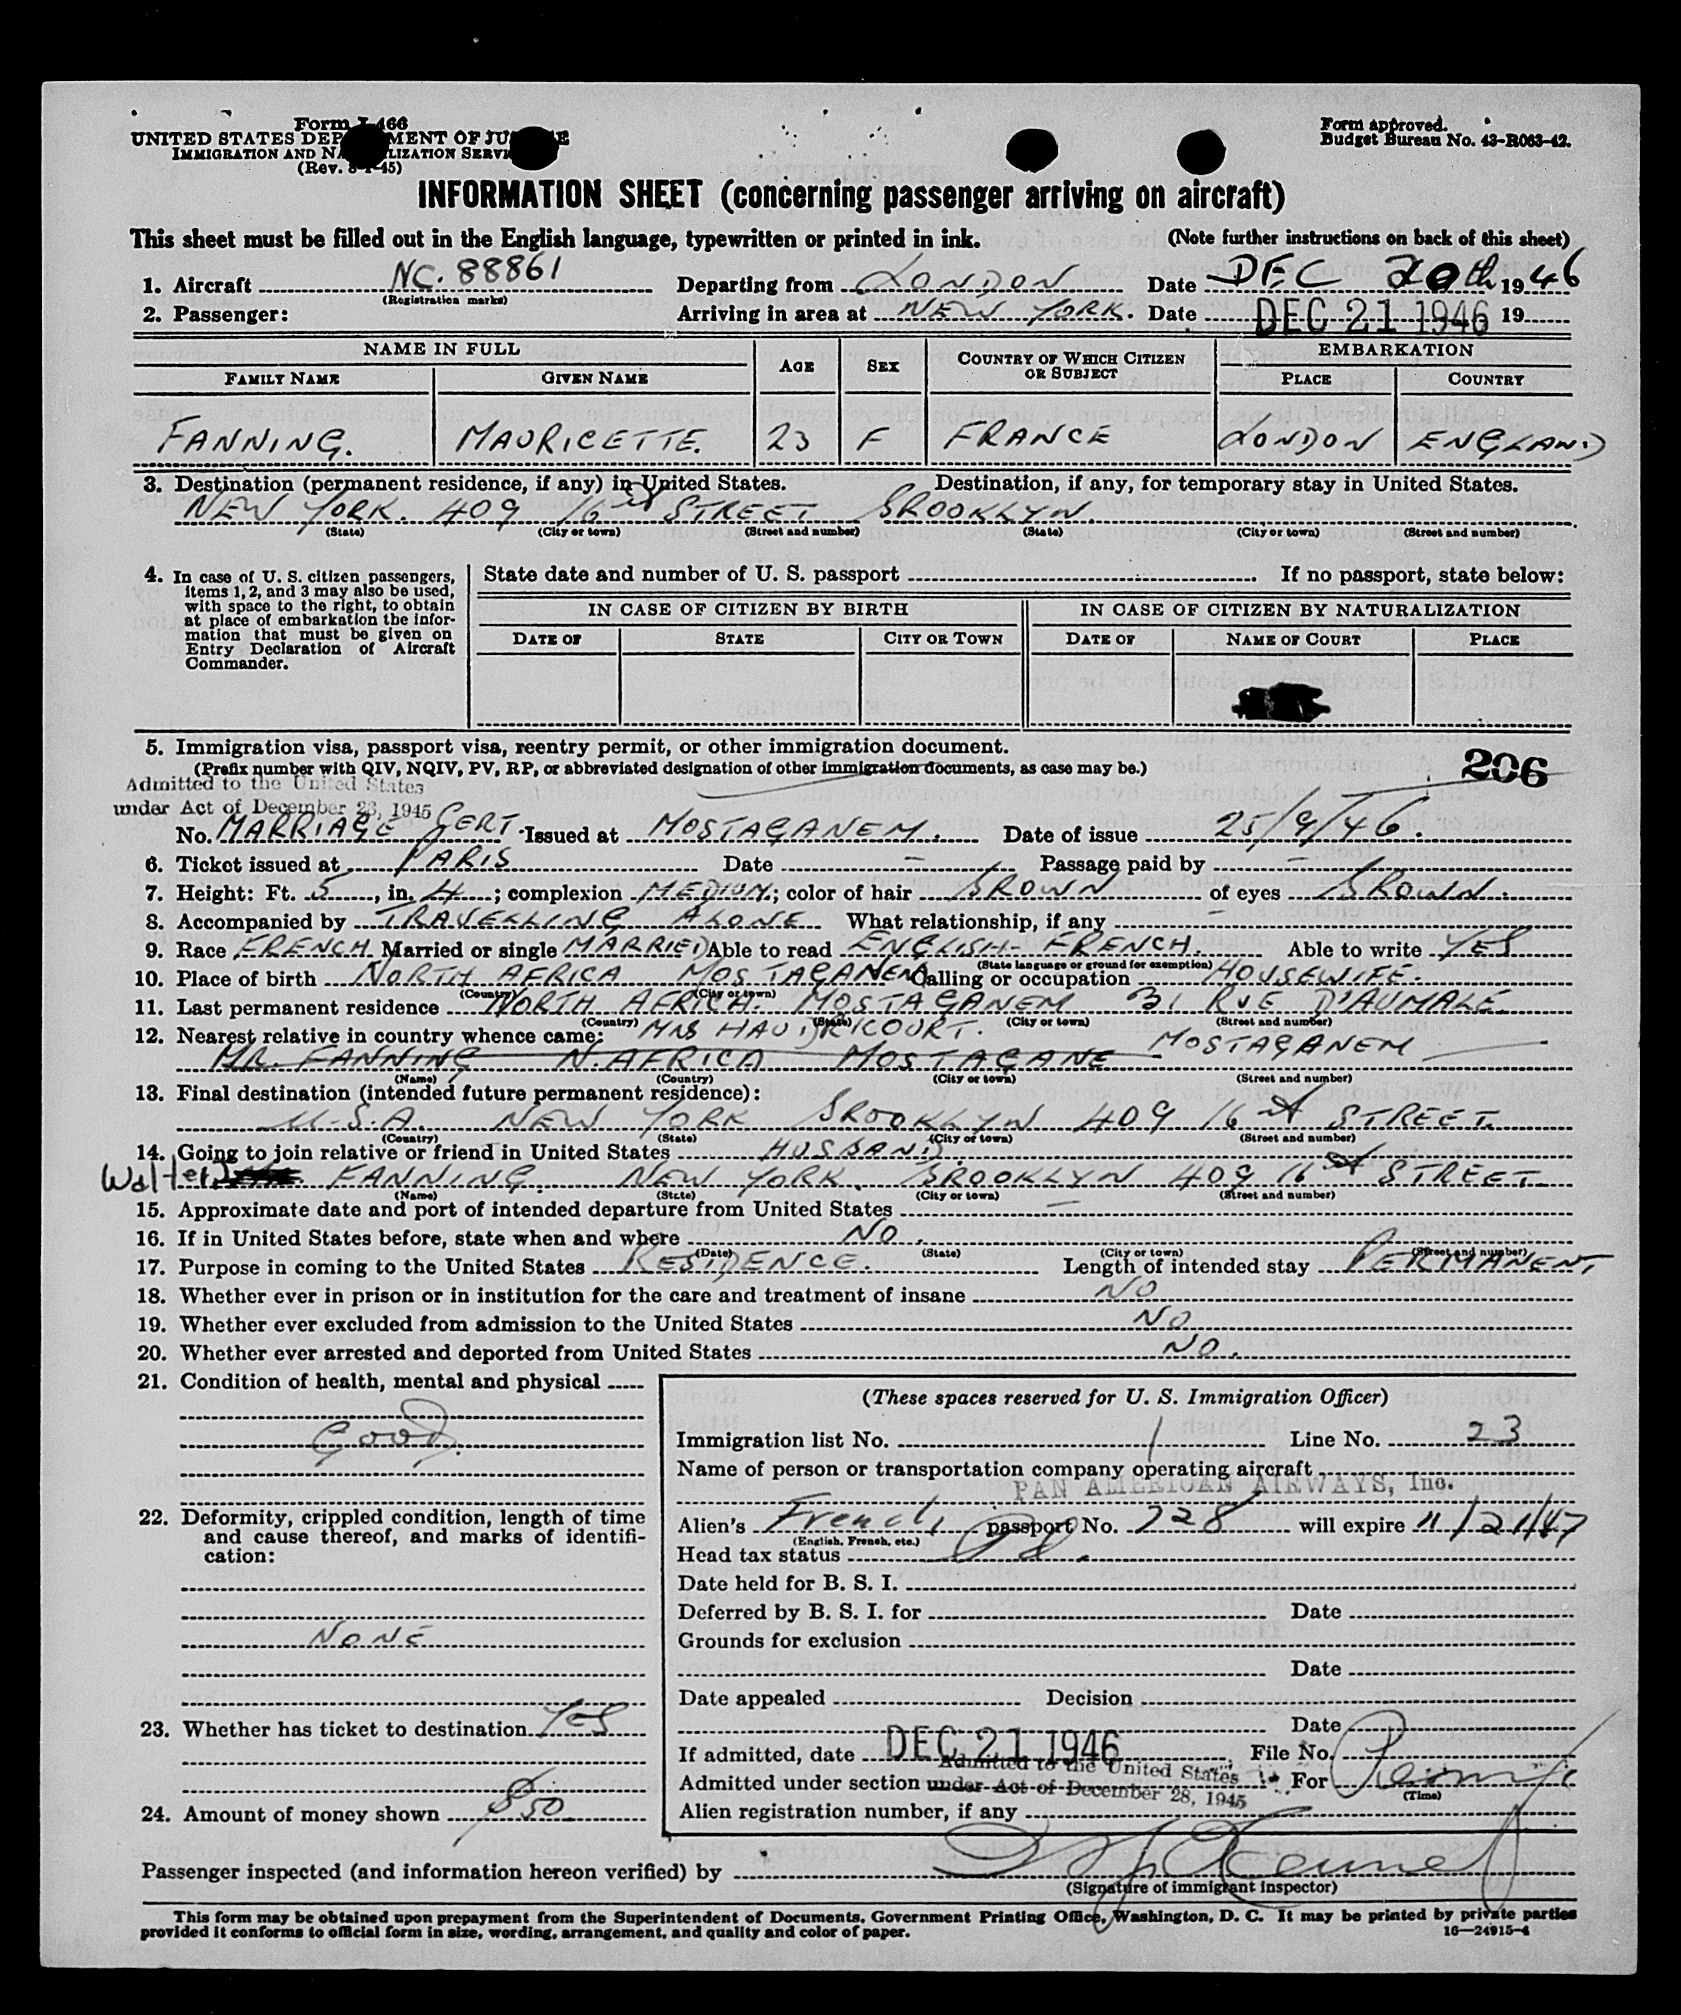 Form I-466
UNITED STATES DEPARTMENT OF JUSTICE
IMMIGRATION AND NATURALIZATION SERVICE
(Rev. 8-1-45)
Form approved.
Budget Bureau No. 43-R063-42.
INFORMATION SHEET (concerning passenger arriving on aircraft)
This sheet must be filled out in the English language, typewritten or printed in ink. (Note further instructions on back of this sheet)
1. Aircraft NC. 88861 Departing from LONDON Date DEC 20th 1946
(Registration marks)
2. Passenger: Arriving in area at NEW YORK. Date DEC 21 1946 19
NAME IN FULL AGE SEX COUNTRY OF WHICH CITIZEN OR SUBJECT EMBARKATION
FAMILY NAME GIVEN NAME PLACE COUNTRY
FANNING. MAURICETTE. 23 F FRANCE LONDON ENGLAND
3. Destination (permanent residence, if any) in United States. Destination, if any, for temporary stay in United States.
NEW YORK. 409 16st STREET BROOKLYN.
(State) (City or town) (Street and number) (State) (City or town) (Street and number)
4. In case of U. S. citizen passengers, items 1, 2, and 3 may also be used, with space to the right, to obtain at place of embarkation the information that must be given on Entry Declaration of Aircraft Commander.
State date and number of U. S. passport If no passport, state below:
IN CASE OF CITIZEN BY BIRTH IN CASE OF CITIZEN BY NATURALIZATION
DATE OF STATE CITY OR TOWN DATE OF NAME OF COURT PLACE
5. Immigration visa, passport visa, reentry permit, or other immigration document.
(Prefix number with QIV, NQIV, PV, RP, or abbreviated designation of other immigration documents, as case may be.)
206
Admitted to the United States
under Act of December 28, 1945
No. MARRIAGE CERT. Issued at MOSTAGANEM. Date of issue 25/9/46.
6. Ticket issued at PARIS Date - Passage paid by -
7. Height: Ft. 5, in. 4; complexion MEDIUM; color of hair BROWN of eyes BROWN.
8. Accompanied by TRAVELLING ALONE What relationship, if any -
9. Race FRENCH Married or single MARRIED Able to read ENGLISH- FRENCH. Able to write YES
(State language or ground for exemption)
10. Place of birth NORTH AFRICA MOSTAGANEM Calling or occupation HOUSEWIFE.
(Country) (City or town)
11. Last permanent residence NORTH AFRICA. MOSTAGANEM 31 RUE D'AUMALE
(Country) (State) (City or town) (Street and number)
12. Nearest relative in country whence came: MRS HAUDRICOURT. MOSTAGANEM
MR. FANNING N. AFRICA MOSTAGANE
(Name) (Country) (City or town) (Street and number)
13. Final destination (intended future permanent residence):
U.S.A. NEW YORK BROOKLYN 409 16st STREET.
(Country) (State) (City or town) (Street and number)
14. Going to join relative or friend in United States HUSBAND.
Walter J FANNING. NEW YORK. BROOKLYN 409 16st STREET
(Name) (State) (City or town) (Street and number)
15. Approximate date and port of intended departure from United States -
16. If in United States before, state when and where NO.
(Date) (State) (City or town) (Street and number)
17. Purpose in coming to the United States RESIDENCE. Length of intended stay PERMANENT
18. Whether ever in prison or in institution for the care and treatment of insane NO
19. Whether ever excluded from admission to the United States NO
20. Whether ever arrested and deported from United States NO.
21. Condition of health, mental and physical
GOOD.
22. Deformity, crippled condition, length of time and cause thereof, and marks of identification:
NONE
23. Whether has ticket to destination YES
24. Amount of money shown $50
(These spaces reserved for U. S. Immigration Officer)
Immigration list No. 1 Line No. 23
Name of person or transportation company operating aircraft
PAN AMERICAN AIRWAYS, Inc.
Alien's French passport No. 728 will expire 11/21/47
(English, French, etc.)
Head tax status
Date held for B. S. I.
Deferred by B. S. I. for Date
Grounds for exclusion
Date
Date appealed Decision
Date
If admitted, date DEC 21 1946 File No.
Admitted under section Admitted to the United States under Act of December 28, 1945 For
(Time)
Alien registration number, if any
Passenger inspected (and information hereon verified) by
(Signature of immigrant inspector)
This form may be obtained upon prepayment from the Superintendent of Documents, Government Printing Office, Washington, D. C. It may be printed by private parties
provided it conforms to official form in size, wording, arrangement, and quality and color of paper. 16-24915-4